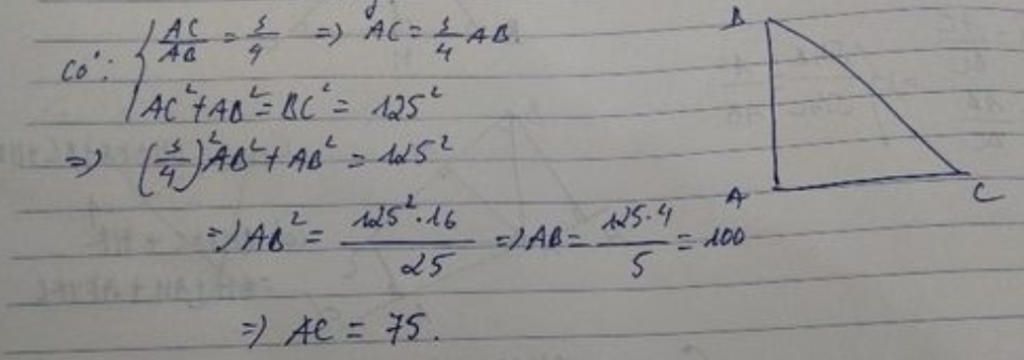 Có: { AC/AB = 3/4 => AC = 3/4 AB.
AC² + AB² = BC² = 125²
=> (3/4)² AB² + AB² = 125²
=> AB² = 125².16/25 => AB = 125.4/5 = 100
=> AC = 75.
B
A
C